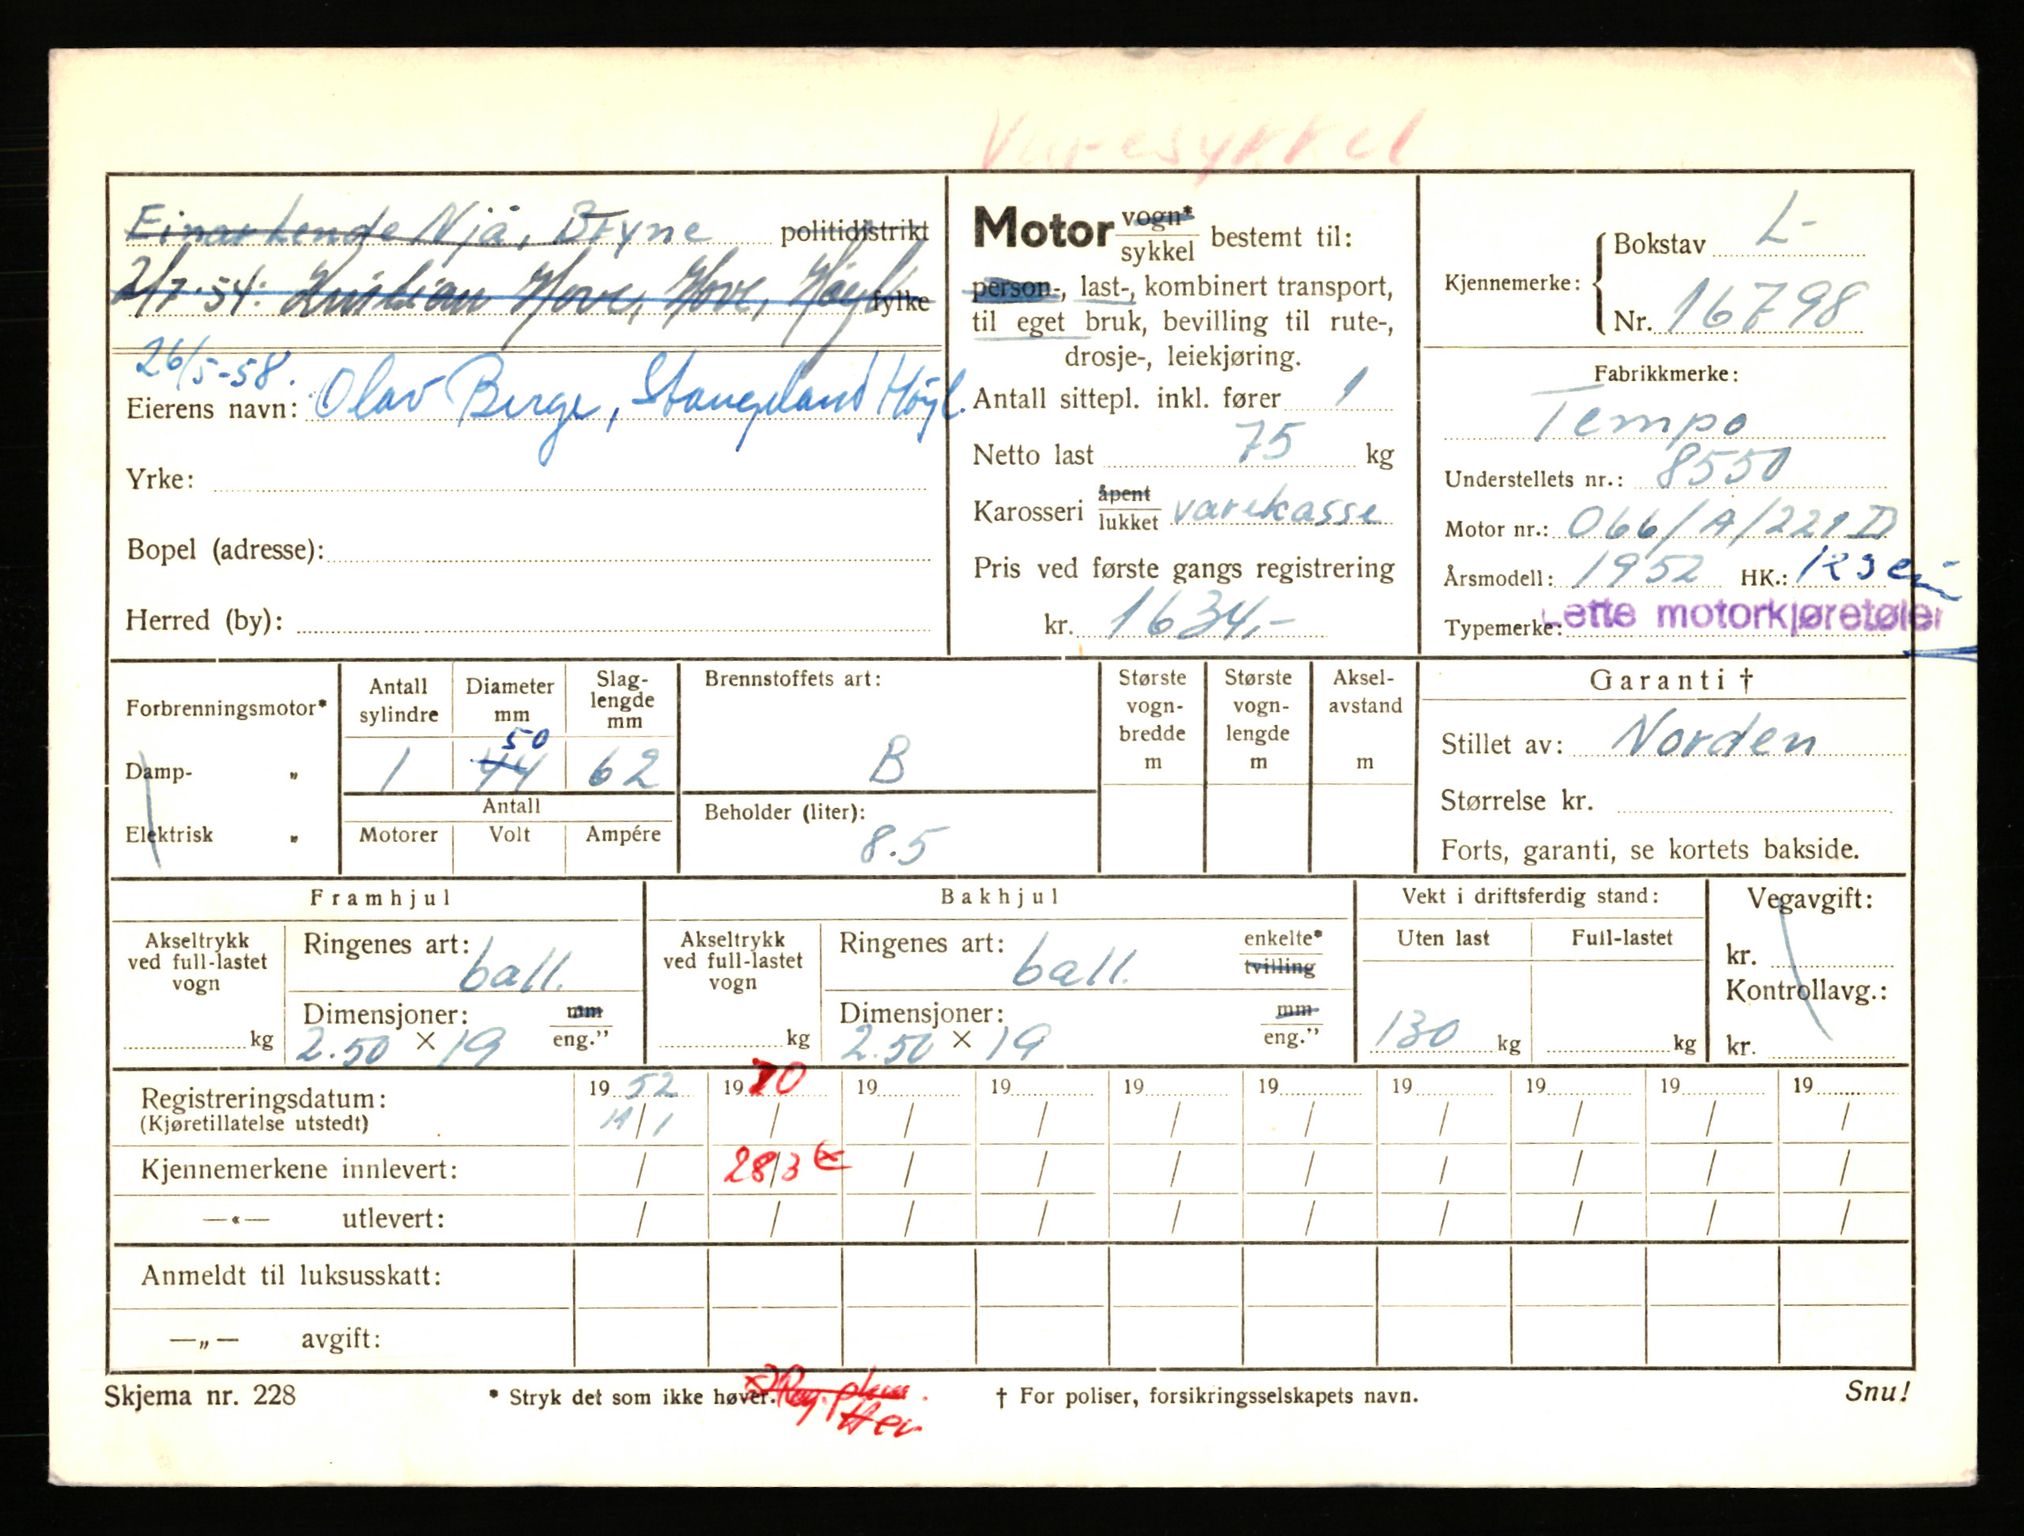 Varesykkel
Einar Lende Njå, Bryne politidistrikt
2/7-54: Kristian Hove, Hove, Høyl. fylke
26/5-58.
Eierens navn: Olav Berge, Stangeland Høyl.
Yrke:
Bopel (adresse):
Herred (by):
Motor vogn* sykkel bestemt til:
person-, last-, kombinert transport,
til eget bruk, bevilling til rute-,
drosje-, leiekjøring.
Antall sittepl. inkl. fører 1
Netto last 75 kg
Karosseri åpent lukket varekasse
Pris ved første gangs registrering
kr. 1634,-
Kjennemerke: Bokstav L-
Nr. 16798
Fabrikkmerke:
Tempo
Understellets nr.: 8550
Motor nr.: 066/A/221 D
Årsmodell: 1952 HK.:
Typemerke: Lette motorkjøretøier
Forbrenningsmotor*
Damp- „
Elektrisk „
Antall sylindre 1
Diameter mm 44 50
Slag- lengde mm 62
Antall
Motorer Volt Ampére
Brennstoffets art:
B
Beholder (liter):
8.5
Største vogn- bredde m
Største vogn- lengde m
Aksel- avstand m
Garanti †
Stillet av: Norden
Størrelse kr.
Forts, garanti, se kortets bakside.
Framhjul
Akseltrykk ved full-lastet vogn kg
Ringenes art: ball.
Dimensjoner: mm eng.”
2.50 × 19
Bakhjul
Akseltrykk ved full-lastet vogn kg
Ringenes art: ball. enkelte* tvilling
Dimensjoner: mm eng.”
2.50 × 19
Vekt i driftsferdig stand:
Uten last Full-lastet
130 kg kg
Vegavgift:
kr.
Kontrollavg.:
kr.
Registreringsdatum: 1952 1970 19 19 19 19 19 19 19 19
(Kjøretillatelse utstedt) 14/1 / / / / / / / / /
Kjennemerkene innlevert: / 28/3 x) / / / / / / / /
—«— utlevert: / / / / / / / / / /
Anmeldt til luksusskatt:
—„— avgift:
Skjema nr. 228 * Stryk det som ikke høver. † For poliser, forsikringsselskapets navn. Snu!
x) Reg.